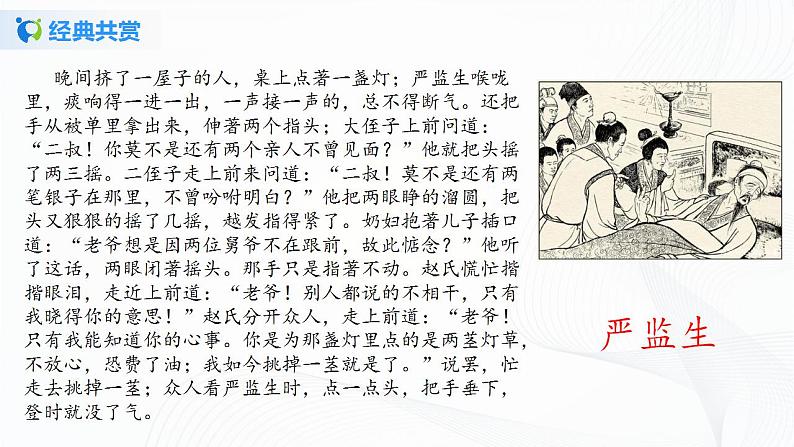 经典共赏
晚间挤了一屋子的人，桌上点著一盏灯；严监生喉咙
里，痰响得一进一出，一声接一声的，总不得断气。还把
手从被单里拿出来，伸著两个指头；大侄子上前问道：
“二叔！你莫不是还有两个亲人不曾见面？”他就把头摇
了两三摇。二侄子走上前来问道：“二叔！莫不是还有两
笔银子在那里，不曾吩咐明白？”他把两眼睁的溜圆，把
头又狠狠的摇了几摇，越发指得紧了。奶妇抱著儿子插口
道：“老爷想是因两位舅爷不在跟前，故此惦念？”他听
了这话，两眼闭著摇头。那手只是指著不动。赵氏慌忙揩
揩眼泪，走近上前道：“老爷！别人都说的不相干，只有
我晓得你的意思！”赵氏分开众人，走上前道：“老爷！
只有我能知道你的心事。你是为那盏灯里点的是两茎灯草，
不放心，恐费了油；我如今挑掉一茎就是了。”说罢，忙
走去挑掉一茎；众人看严监生时，点一点头，把手垂下，
登时就没了气。
严监生